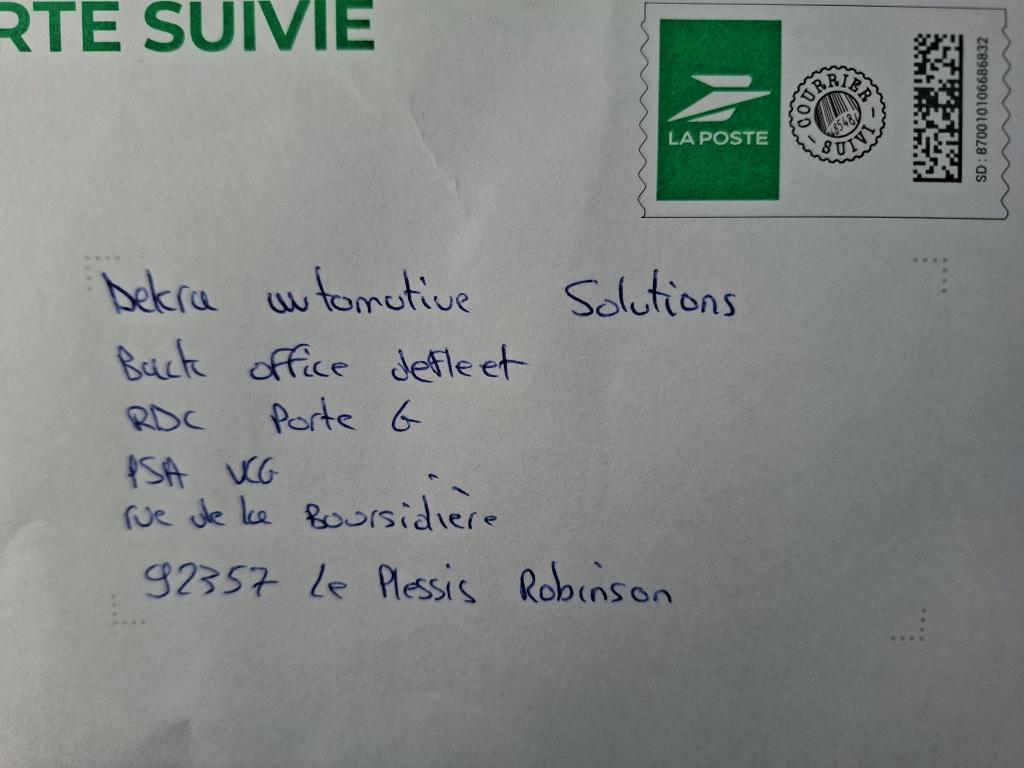 RTE SUIVIE
LA POSTE
COURRIER SUIVI
SD : 870010106686832
Dekra automotive Solutions
Back office defleet
RDC Porte G
PSA VCG
rue de la Boursidière
92357 Le Plessis Robinson